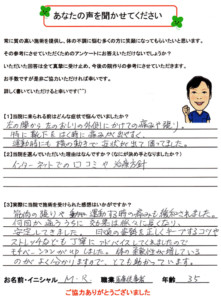 あなたの声を聞かせてください
常に質の高い施術を提供し、体の不調に悩む多くの方に笑顔になってもらいたいと思います。
その参考にさせていただくためのアンケートにお答えいただけないでしょうか？
いただいた回答は全て真摯に受け止め、今後の院作りの参考にさせていただきます。
お手数ですが是非ご協力いただければ幸いです。
詳しく書いていただけると幸いです(^^)
【1】当院に来られる前はどんな症状で悩んでいましたか？
左の腰から左のおしりの外側にかけての痛みや張り。
特に靴下をはく時に痛みが出やすく、
運動時にも踏み動きで症状が出て困ってました。
【2】当院を選んでいただいた理由はなんですか？（なにが決め手となりましたか？）
インターネットでの口コミや治療方針
【3】実際に当院で施術を受けられた感想はいかがですか？
筋肉の張りや運動する時の痛みも緩和されました。
何回か通ううちに効果は徐々に良くなり
安定してきました。日頃の姿勢を正しくキープするコツや
ストレッチなども丁寧にアドバイスしてくれましたので
モチベーションが上がりました。体の柔軟性が増している
のがよく分かりますので、とても助かっています。
お名前・イニシャル M・K 職業 年齢 35
ご協力ありがとうございました